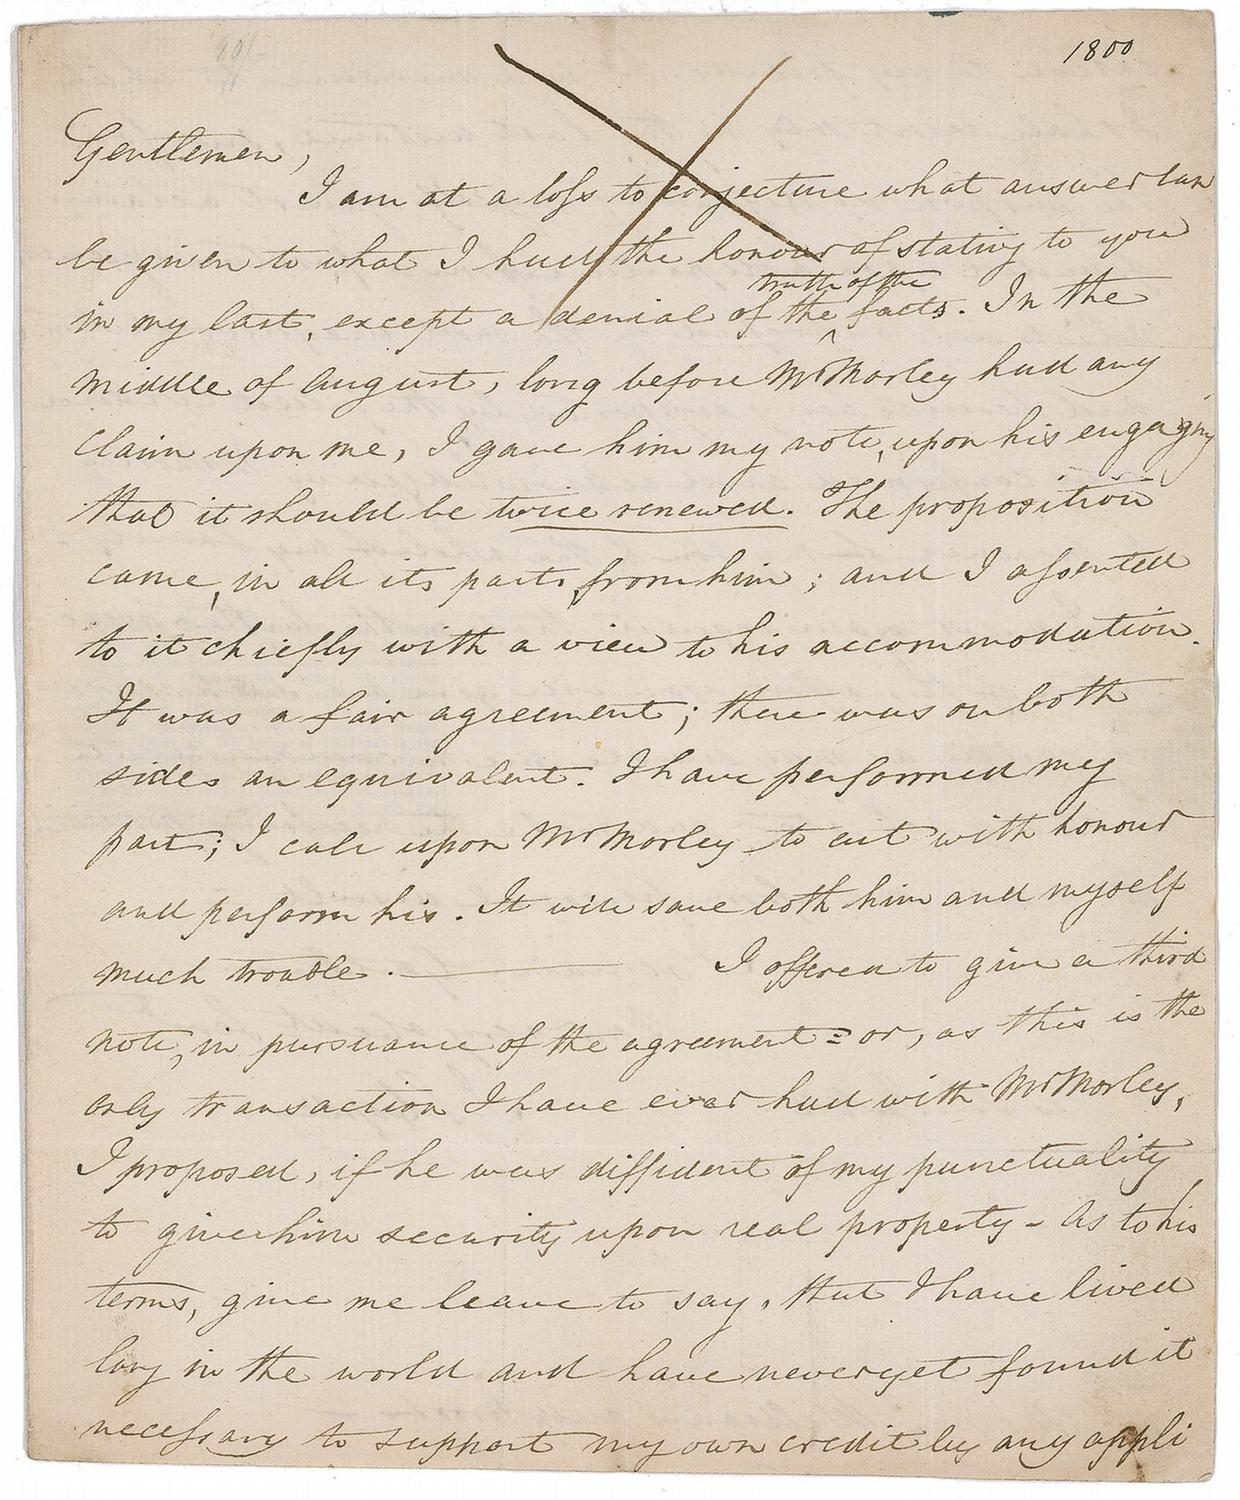 1800
Gentlemen,
I am at a loss to conjecture what answer can
be given to what I had the honour of stating to you
truth of the
in my last, except a denial of the ^ facts. In the
middle of August, long before Mr Morley had any
claim upon me, I gave him my note, upon his engaging
that it should be twice renewed. The proposition
came, in all its parts, from him; and I assented
to it chiefly with a view to his accommodation.
It was a fair agreement; there was on both
sides an equivalent. I have performed my
part; I call upon Mr Morley to act with honour
and perform his. It will save both him and myself
much trouble. — I offered to give a third
note, in pursuance of the agreement: or, as this is the
only transaction I have ever had with Mr Morley,
I proposed, if he was diffident of my punctuality
to give him security upon real property - As to his
terms, give me leave to say, that I have lived
long in the world and have never yet found it
necessary to support my own credit by any appli